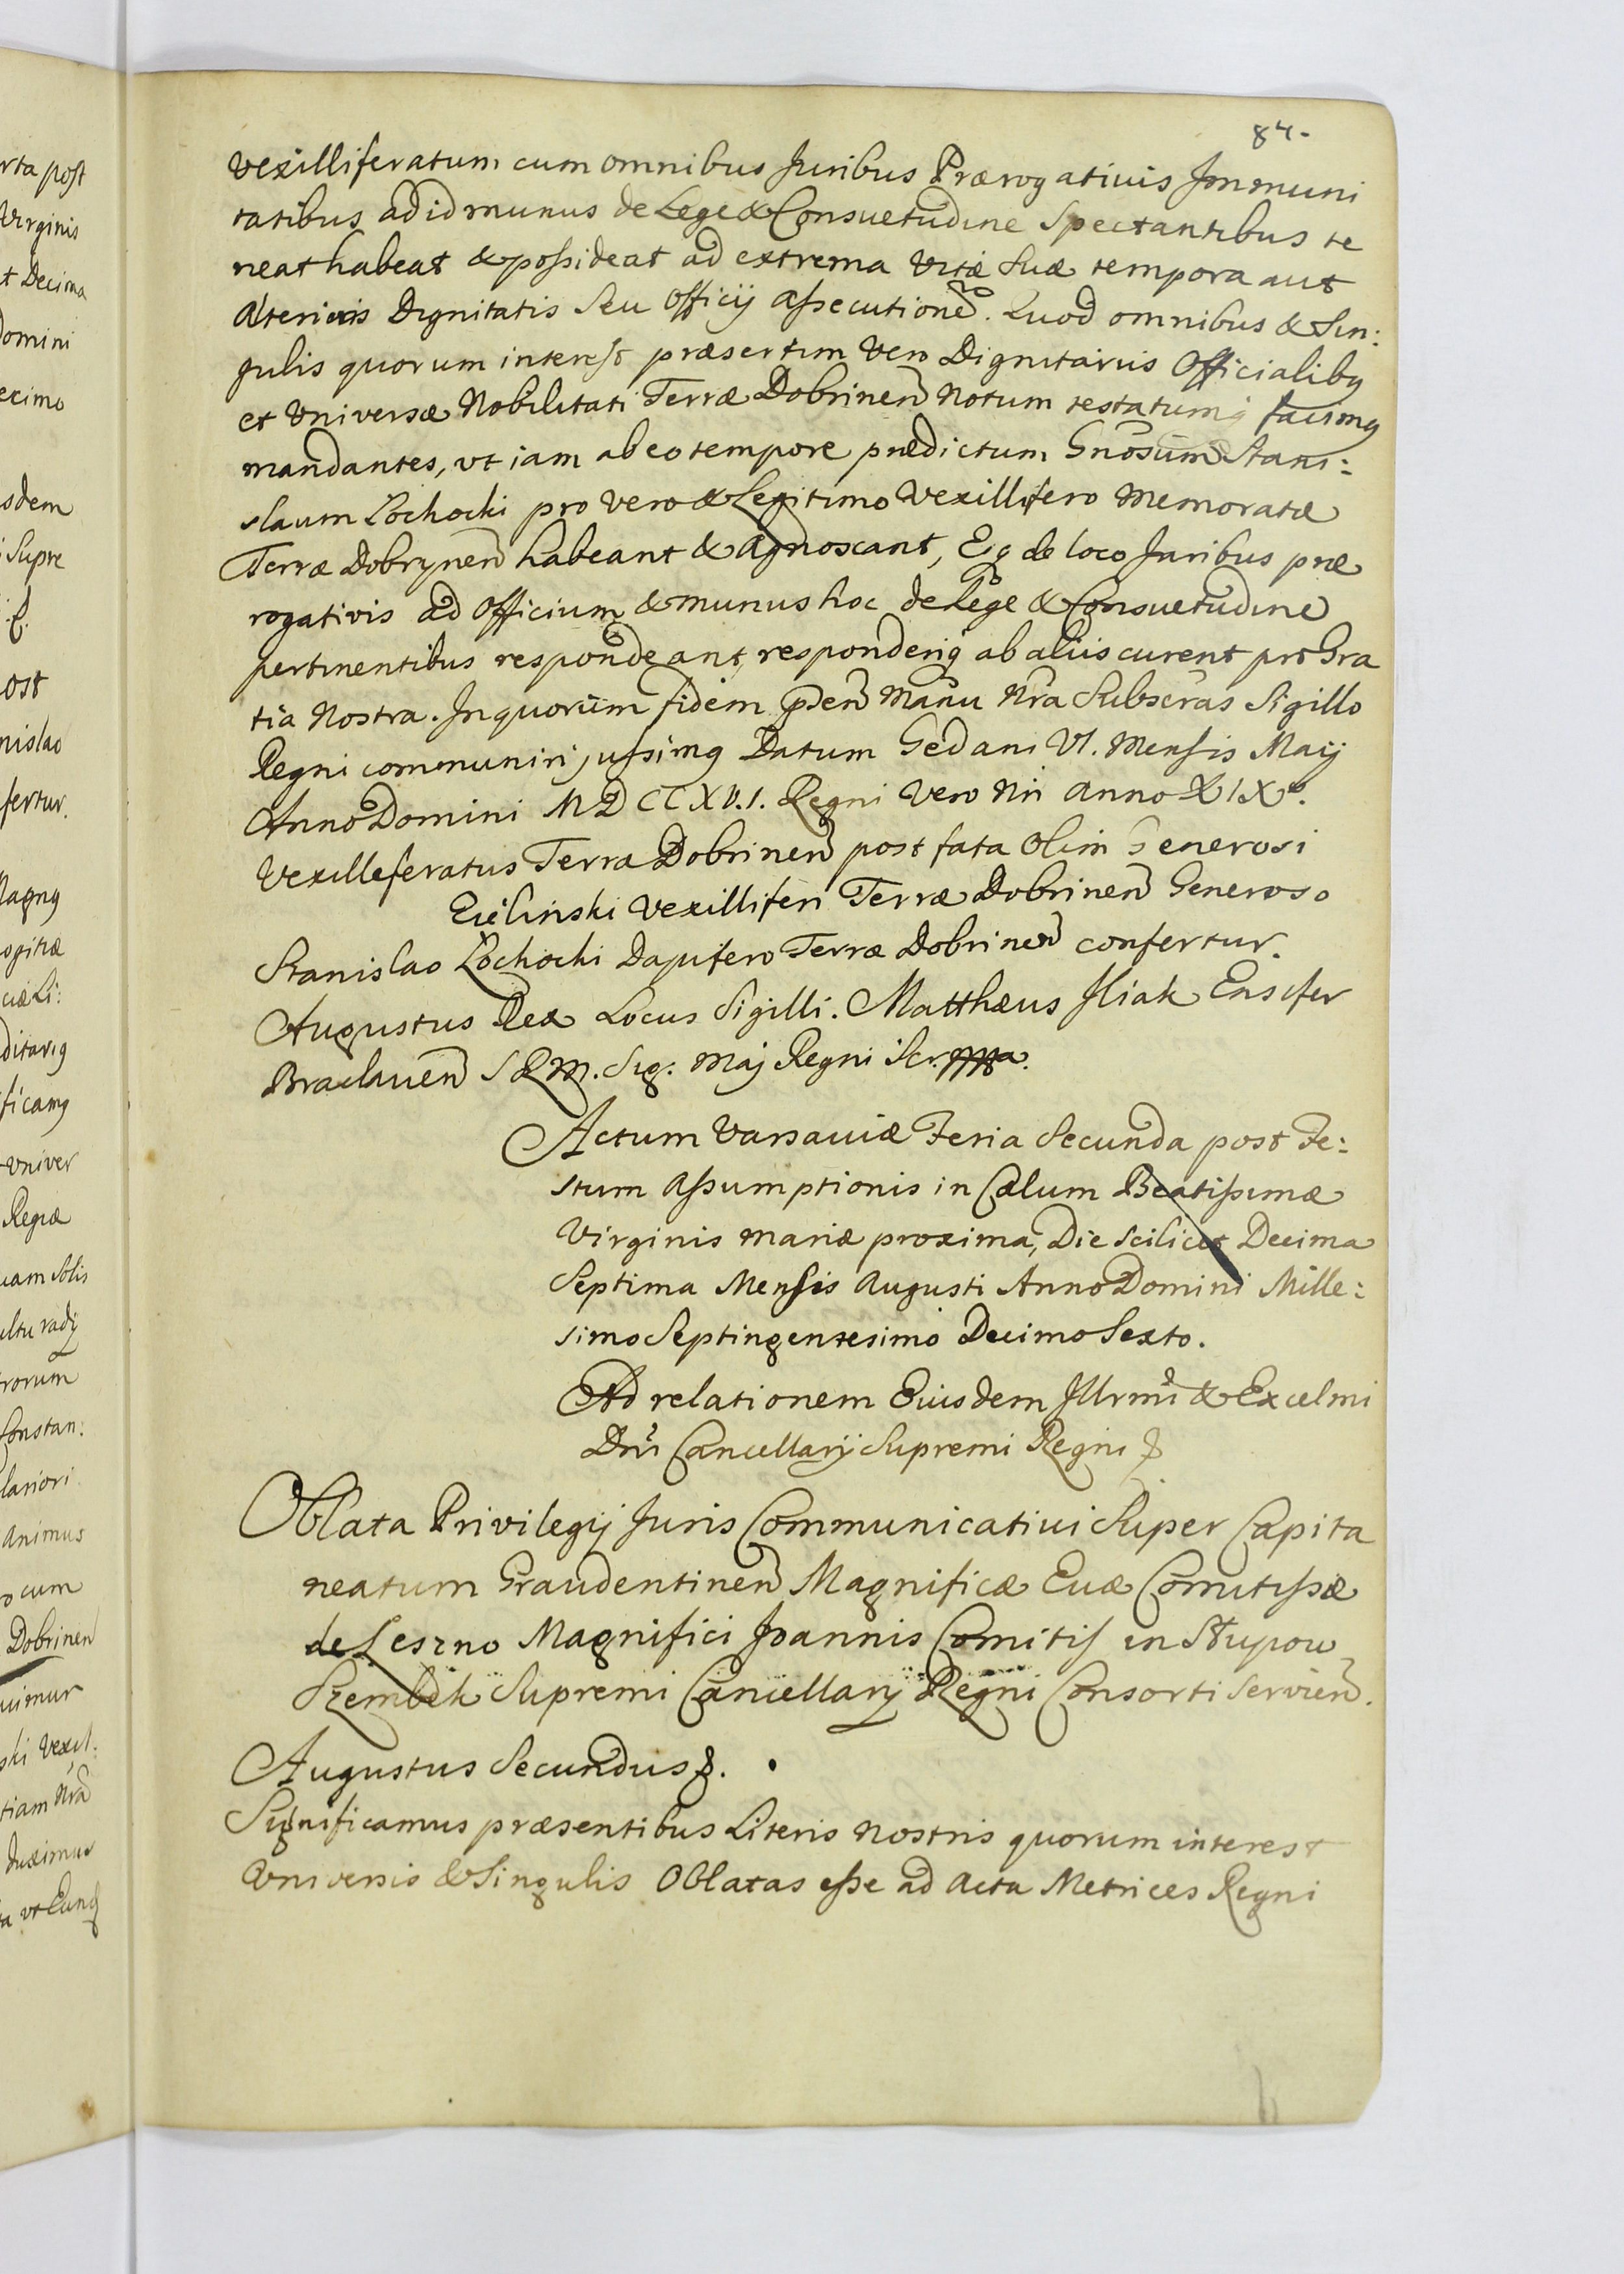 84.
vexilliferatum cum omnibus Juribus Prærogatiuis Jmmuni
tatibus ad id munus de Lege & Consuetudine Spectantibus te
neat habeat & possideat ad extrema Vitæ Suæ tempora aut
alterioris Dignitatis Seu Officij assecutionē. Quod omnibus & Sin:
gulis quorum interest præsertim Vero Dignitariis Officialibq
et Vniversæ Nobilitati Terræ Dobrinen̄ Notum testatumq̧ facimq
mandantes, vt iam ab eo tempore prædictum Gnōsum Stani:
slaum Łochocki pro Vero & Legitimo Vexillifero Memoratæ
Terræ Dobrynen̄ habeant & agnoscant, Eq de loco Juribus præ
rogativis ad Officium & munus hoc de Lege & Consuetudine
pertinentibus respondeant, responderiq̧ ab aliis curent pro Gra
tia Nostra. Jn quorum fidem pñtes Manu Nrā Subscras Sigillo
Regni communiri jussimq Datum Gedani VI. Mensis Maij
Anno Domini MDCCXV.I. Regni Vero Nri Anno XIXo.
Vexilleferatus Terra Dobrinen̄ post fata Olim Generosi
Zielinski Vexilliferi Terræ Dobrinen̄ Generoso
Stanislao Łochocki Dapifero Terræ Dobrinen̄ confertur.
Augustus Rex Locus Sigilli. Matthæus Jliak Ensifer
Braclauen̄ S R M. Sig: Maj Regni Scr.
Actum Varsauiæ Feria Secunda post Fe:
stum Assumptionis in Cælum Beatissimæ
Virginis Mariæ proxima, Die scilicet Decima
Septima Mensis Augusti Anno Domini Mille:
simo Septingentesimo Decimo Sexto.
Ad relationem Eiusdem Jllrmi & Excelmi
Dnī Cancellarij Supremi Regni
Oblata Privilegij Juris Communicatiui Super Capita
neatum Graudentinen̄ Magnificæ Euæ Comitissæ
de Leszno Magnifici Joannis Comitis in Słupow
Szembek Supremi Cancellarij Regni Consorti Servien̄.
Augustus Secundus.
Significamus præsentibus Literis Nostris quorum interest
Vniversis & Singulis Oblatas esse ad Acta Metrices Regni